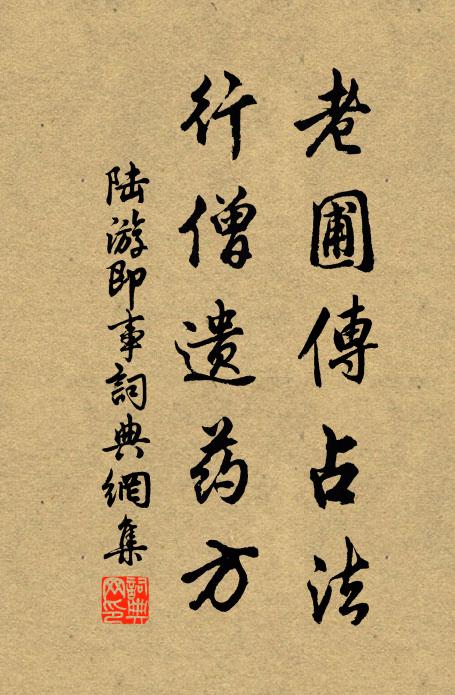 老圃傳占法
行僧遗药方
陆游即事詞典網集
詞典网印